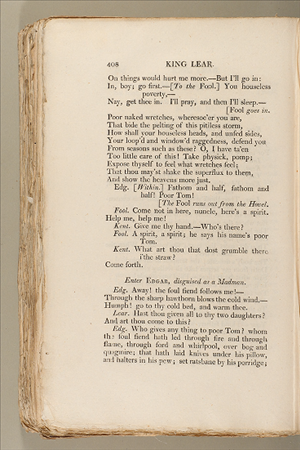 408 KING LEAR.
On things would hurt me more.—But I'll go in:
In, boy; go first.—[To the Fool.] You houseless
poverty,—
Nay, get thee in. I'll pray, and then I'll sleep.—
[Fool goes in.
Poor naked wretches, wheresoe'er you are,
That bide the pelting of this pitiless storm,
How shall your houseless heads, and unfed sides,
Your loop'd and window'd raggedness, defend you
From seasons such as these? O, I have ta'en
Too little care of this! Take physick, pomp;
Expose thyself to feel what wretches feel;
That thou may'st shake the superflux to them,
And show the heavens more just.
Edg. [Within.] Fathom and half, fathom and
half! Poor Tom!
[The Fool runs out from the Hovel.
Fool. Come not in here, nuncle, here's a spirit.
Help me, help me!
Kent. Give me thy hand.—Who's there?
Fool. A spirit, a spirit; he says his name's poor
Tom.
Kent. What art thou that dost grumble there
i'the straw?
Come forth.
Enter EDGAR, disguised as a Madman.
Edg. Away! the foul fiend follows me!—
Through the sharp hawthorn blows the cold wind.—
Humph! go to thy cold bed, and warm thee.
Lear. Hast thou given all to thy two daughters?
And art thou come to this?
Edg. Who gives any thing to poor Tom? whom
the foul fiend hath led through fire and through
flame, through ford and whirlpool, over bog and
quagmire; that hath laid knives under his pillow,
and halters in his pew; set ratsbane by his porridge;